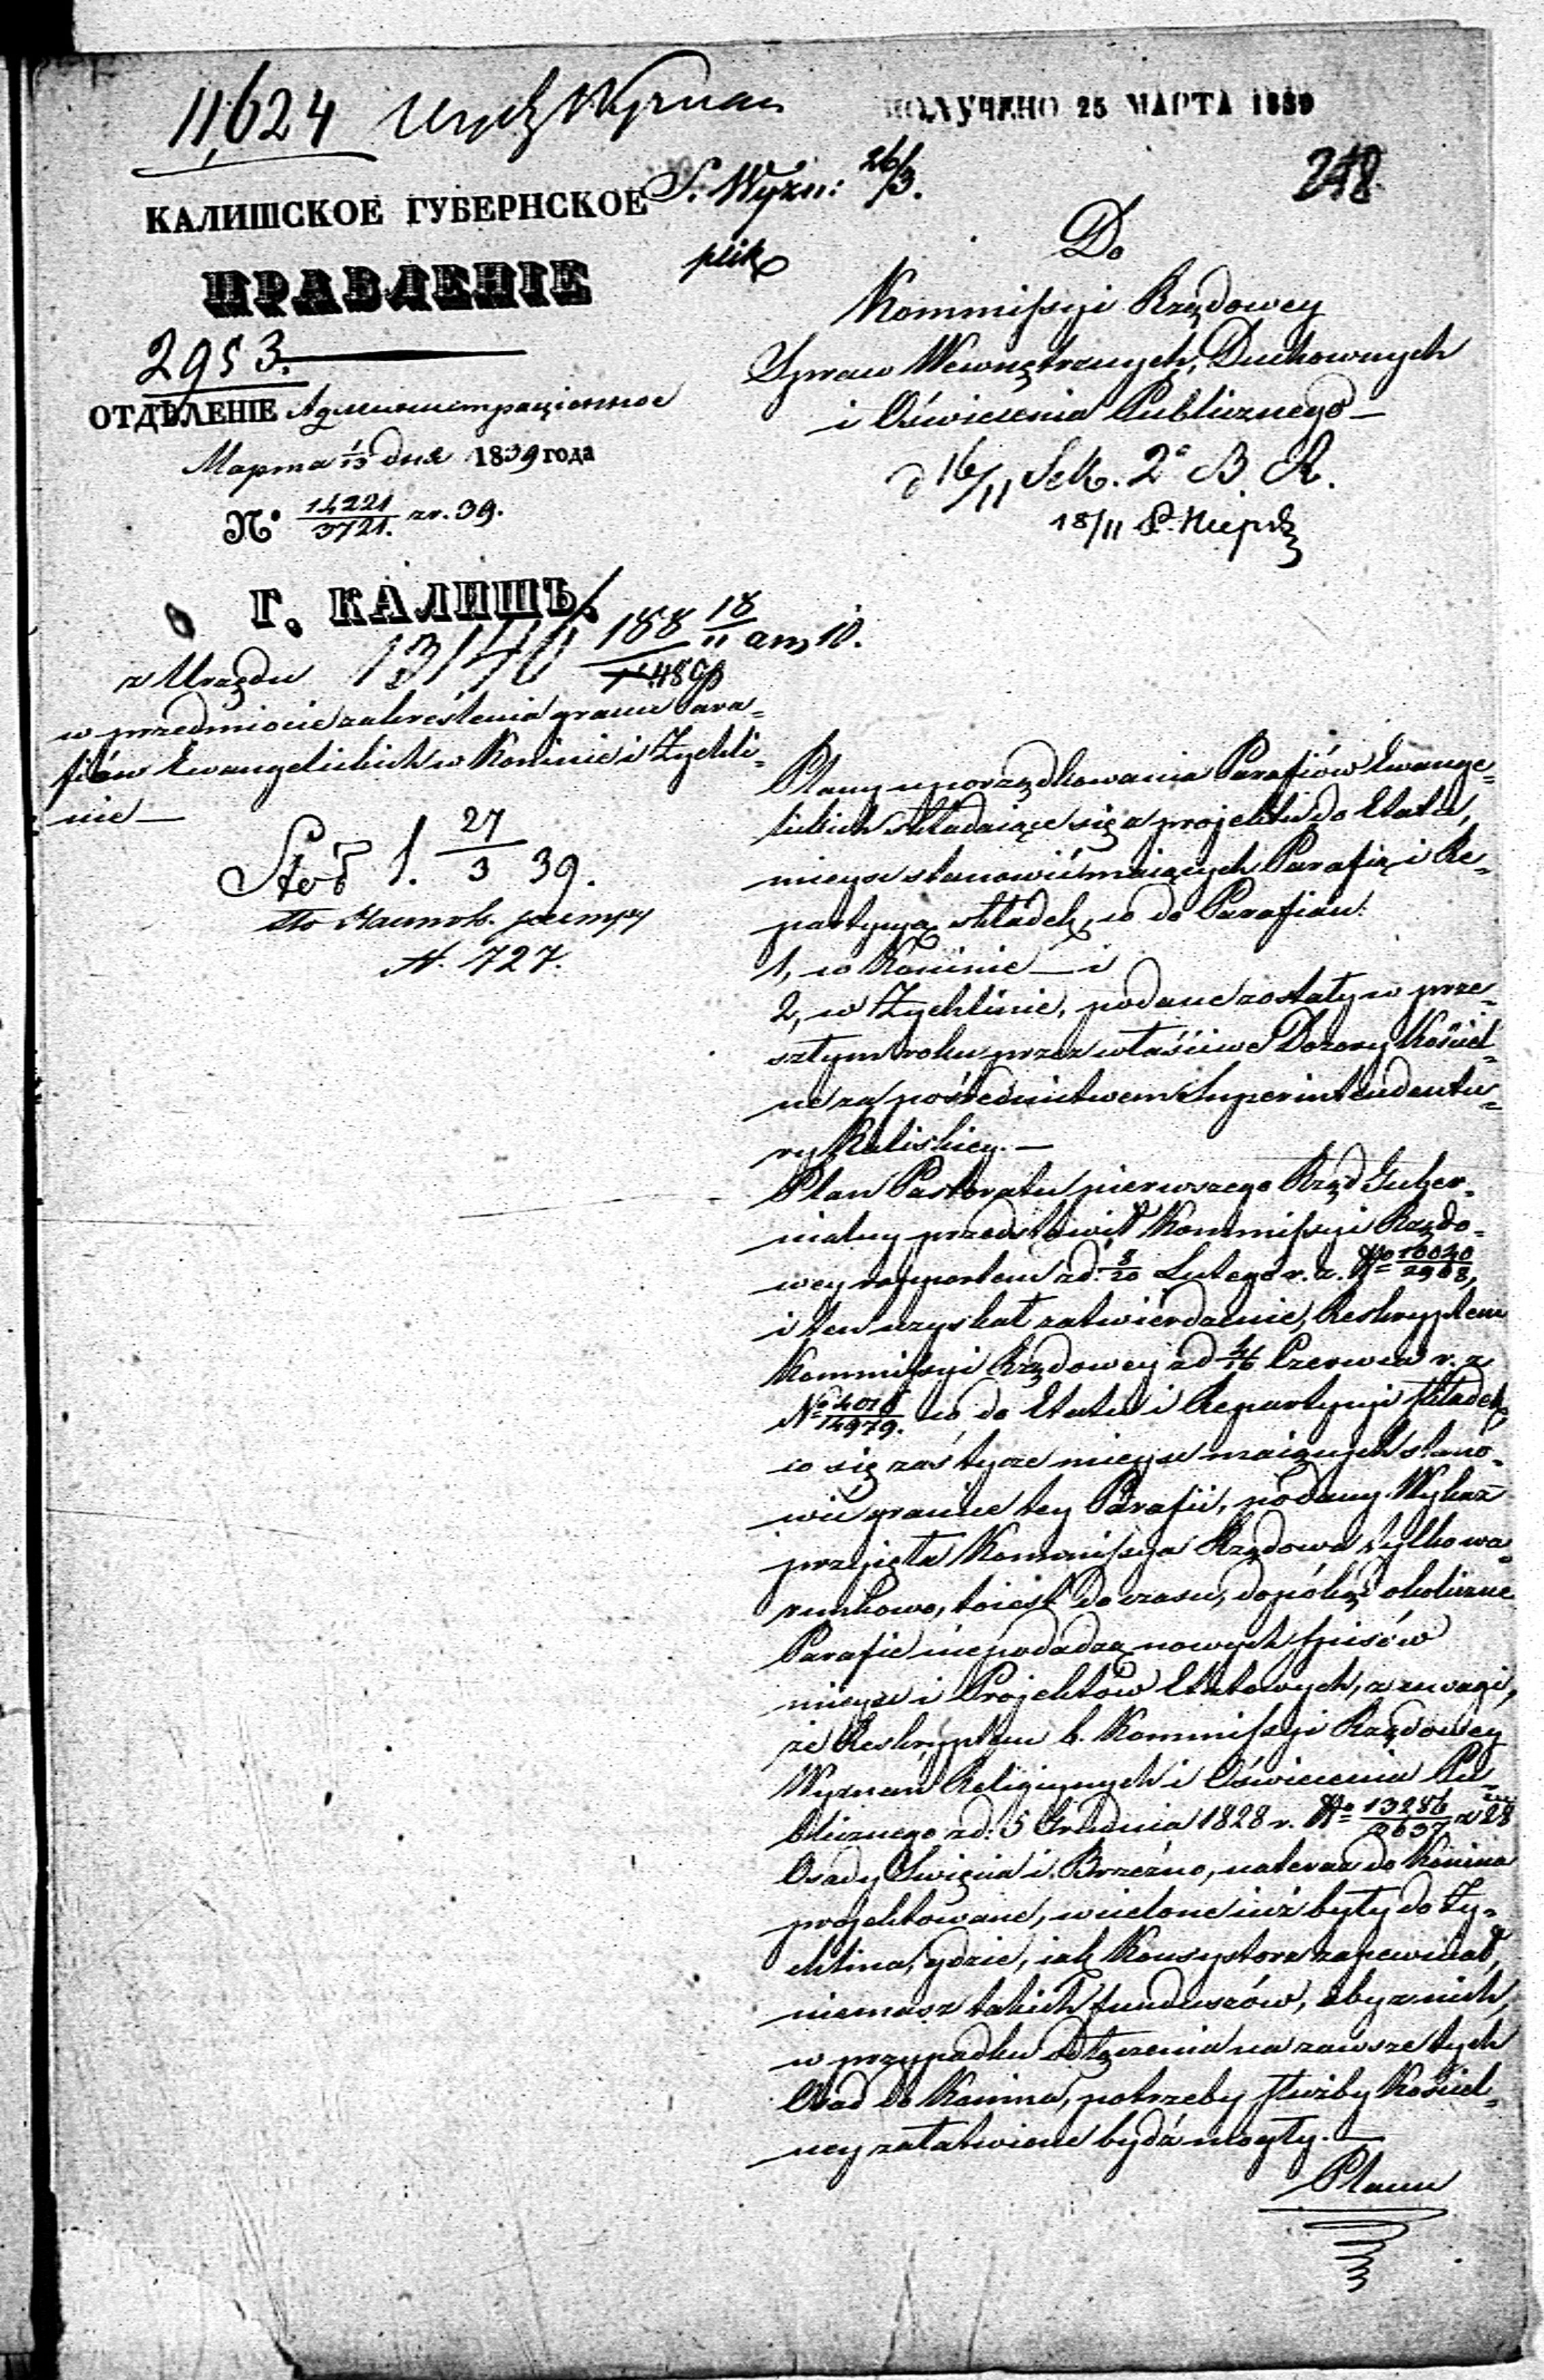 11,624
ПОЛУЧЕНО 25 МАРТА 1839
S. Wyzn: 26/3.
218
КАЛИШСКОЕ ГУБЕРНСКОЕ
ПРАВЛЕНІЕ
2953.
ОТДѢЛЕНІЕ Административное
Марта 1/13 дня 1839 года
№ 14221/3721. zr. 39.
Г. КАЛИШЪ.
13140/188 18/11
z Urzędu
w przedmiocie zakreślenia granic Para=
fiiów Ewangelickich w Koninie i Żychli=
nie —
27/3 39.
N. 727.
Do
Kommissyi Rządowey
Spraw Wewnętrznych, Duchownych
i Oświecenia Publicznego —
d 16/11 Sek. 2a B. R.
18/11
Plany uporządkowania Parafiów Ewange=
lickich składaiące się z projektu do Etatu,
mieysc stanowić maiących Parafią i Re=
partycyą składek, co do Parafian:
1, w Koninie — i
2, w Żychlinie, podane zostały w prze=
szłym roku przez właściwe Dozory Kościel=
ne za pośrednictwem Superintendentu=
ry Kaliskiey. —
Plan Pastoratu pierwszego Rząd Guber=
nialny przedstawił Kommissyi Rządo=
wey rapportem z d: 8/20 Lutego r. z. No 10040/2908,
i ten uzyskał zatwierdzenie, Reskryptem
Kommissyi Rządowey z d 4/16 Czerwca r. z
No 4018/14979. co do Etatu i Repartycyi składek
co się zaś tycze mieysc maiących stano=
wić granice tey Parafii, podany Wykaz
przyięła Kommissya Rządowa tylko wa=
runkowo, toiest do czasu, dopókąd okoliczne
Parafie niepodadzą nowych spisów
mieysc i Projektów Etatowych, z uwagi,
że Reskryptem b. Kommissyi Rządowey
Wyznań Religiynych i Oświecenia Pu=
blicznego z d: 5 Grudnia 1828 r. No 13286/2637 z 28
Osady Swięcia i Brzezno, nateraz do Konina
projektowane, wcielone iuż były do Ży=
chlina, gdzie, iak Konsystorz zapewniał,
niemasz takich funduszów, aby z nich,
w przypadku odłączenia na zawsze tych
Osad do Konina, potrzeby służby Kościel=
ney załatwione bydź mogły. —
Planu